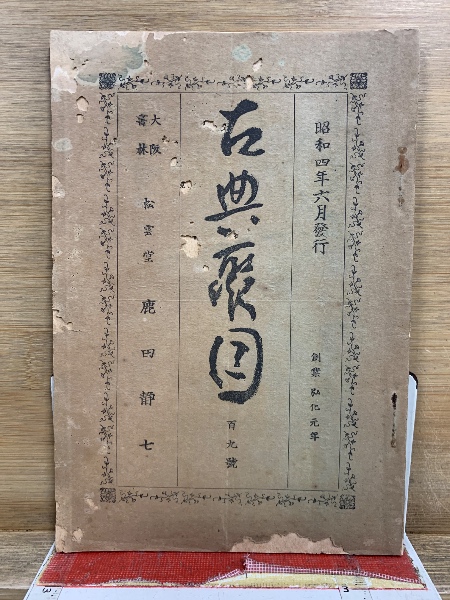 昭和四年六月發行
創業弘化元年
古典聚目
百九號
大阪
書林
松雲堂
鹿田靜七